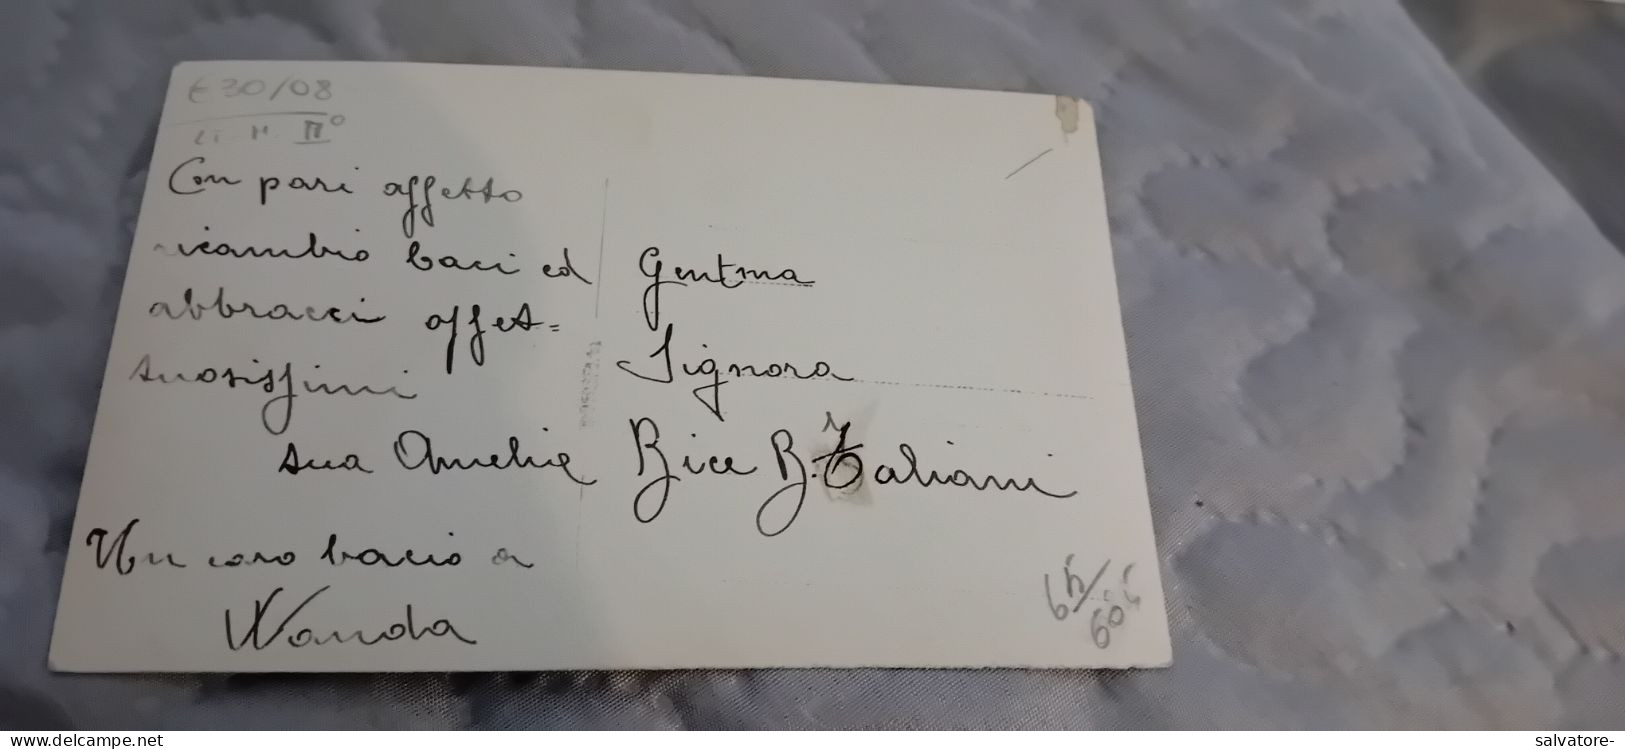 €30/08
Con pari affetto
ricambio baci ed
abbracci affet=
tuosissimi
sua Amelia
Un caro bacio a
Wanda
Gentma
Signora
Bice B. Taliani
salvatore-